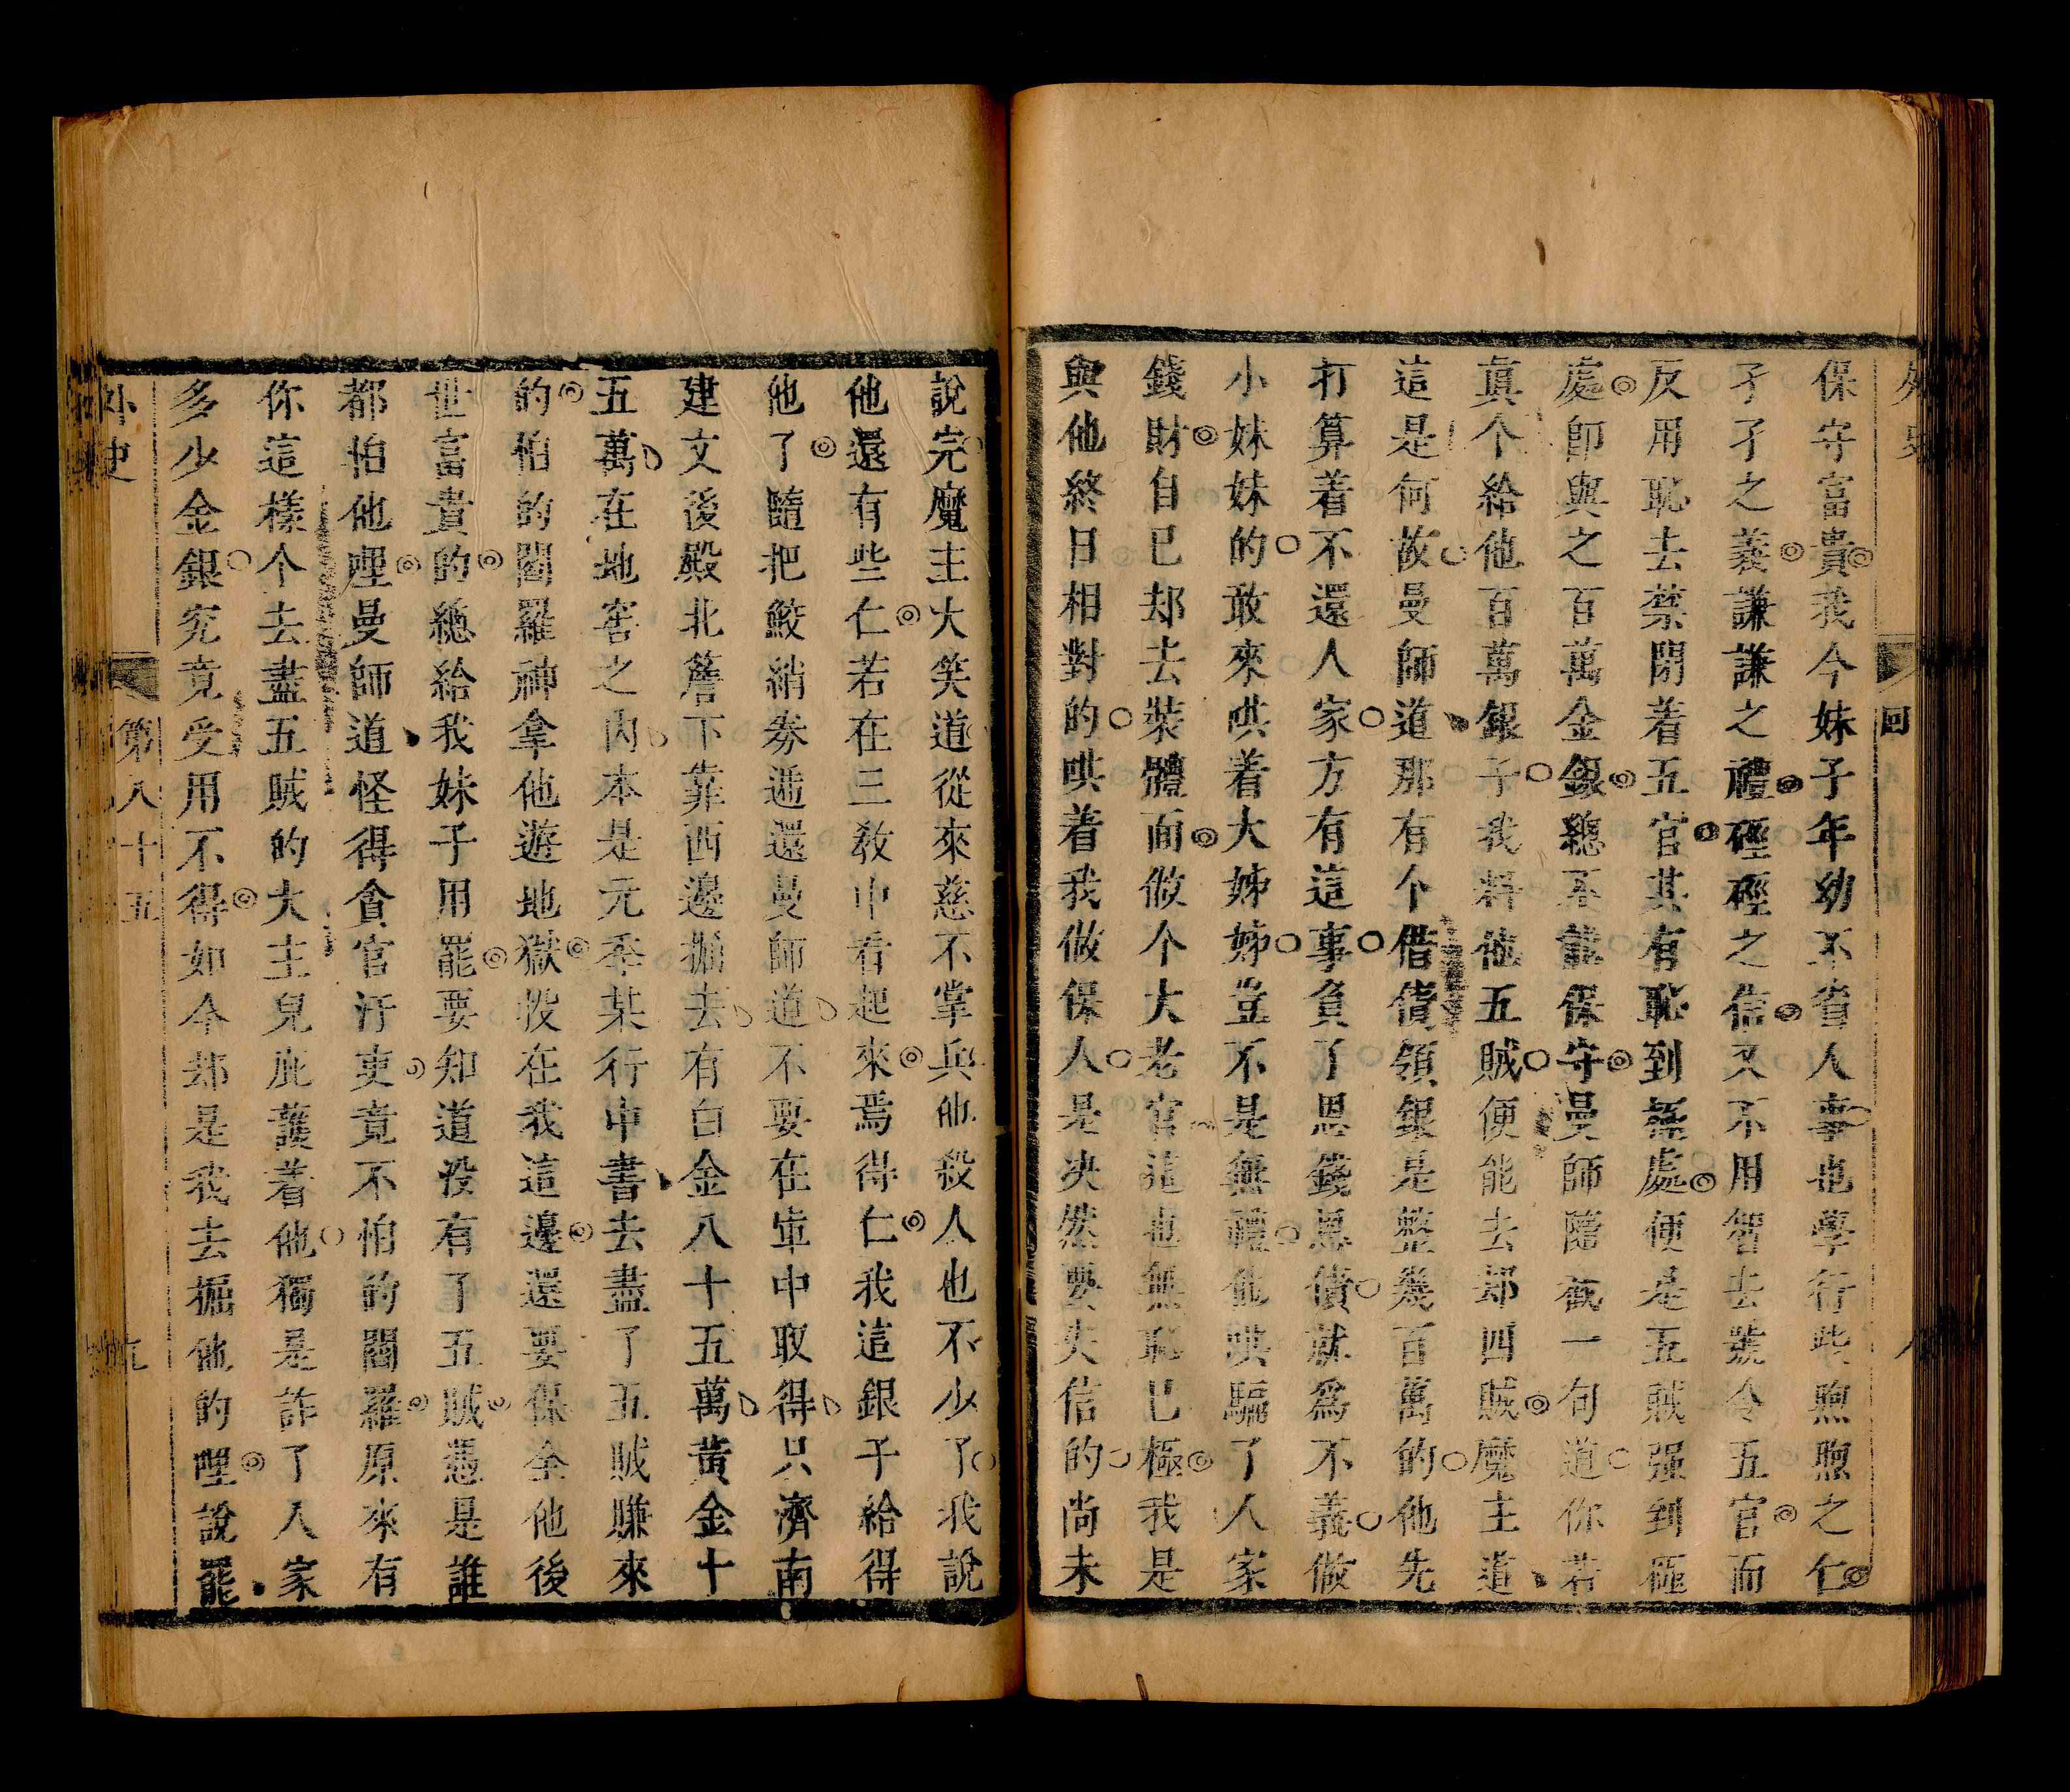 外史
回
八
保守富貴我今妹子年幼不省人事也學行些煦煦之仁
孑孑之義謙謙之禮硜硜之信又不用智去號令五官而
反用恥去禁閉着五官其有恥到極處便是五賊强到極
處即與之百萬金銀總不能保守曼師隨截一句道你若
眞个給他百萬銀子我料他五賊便能去却四賊魔主道
這是何故曼師道那有个借債領銀是整幾百萬的他先
打算着不還人家方有這事負了恩錢恩債就爲不義做
小妹妹的敢來哄着大姊姊豈不是無禮他哄騙了人家
錢財自已却去裝體面做个大老官這也無恥已極我是
與他終日相對的哄着我做保人是决然要失信的尚未
說完魔主大笑道從來慈不掌兵他殺人也不少了我說
他還有些仁若在三教中看起來焉得仁我這銀子給得
他了隨把鮫綃劵遞還曼師道不要在庫中取得只濟南
建文後殿北簷下靠西邊掘去有白金八十五萬黃金十
五萬在地窖之內本是元季某行中書去盡了五賊賺來
的怕的閻羅神拿他遊地獄投在我這邊還要保全他後
世富貴的總給我妹子用罷要知道没有了五賊憑是誰
都怕他哩曼師道怪得貪官汙吏竟不怕的閻羅原來有
你這樣个去盡五賊的大主兒庇護着他獨是詐了人家
多少金銀究竟受用不得如今却是我去掘他的哩說罷
外史
第八十五